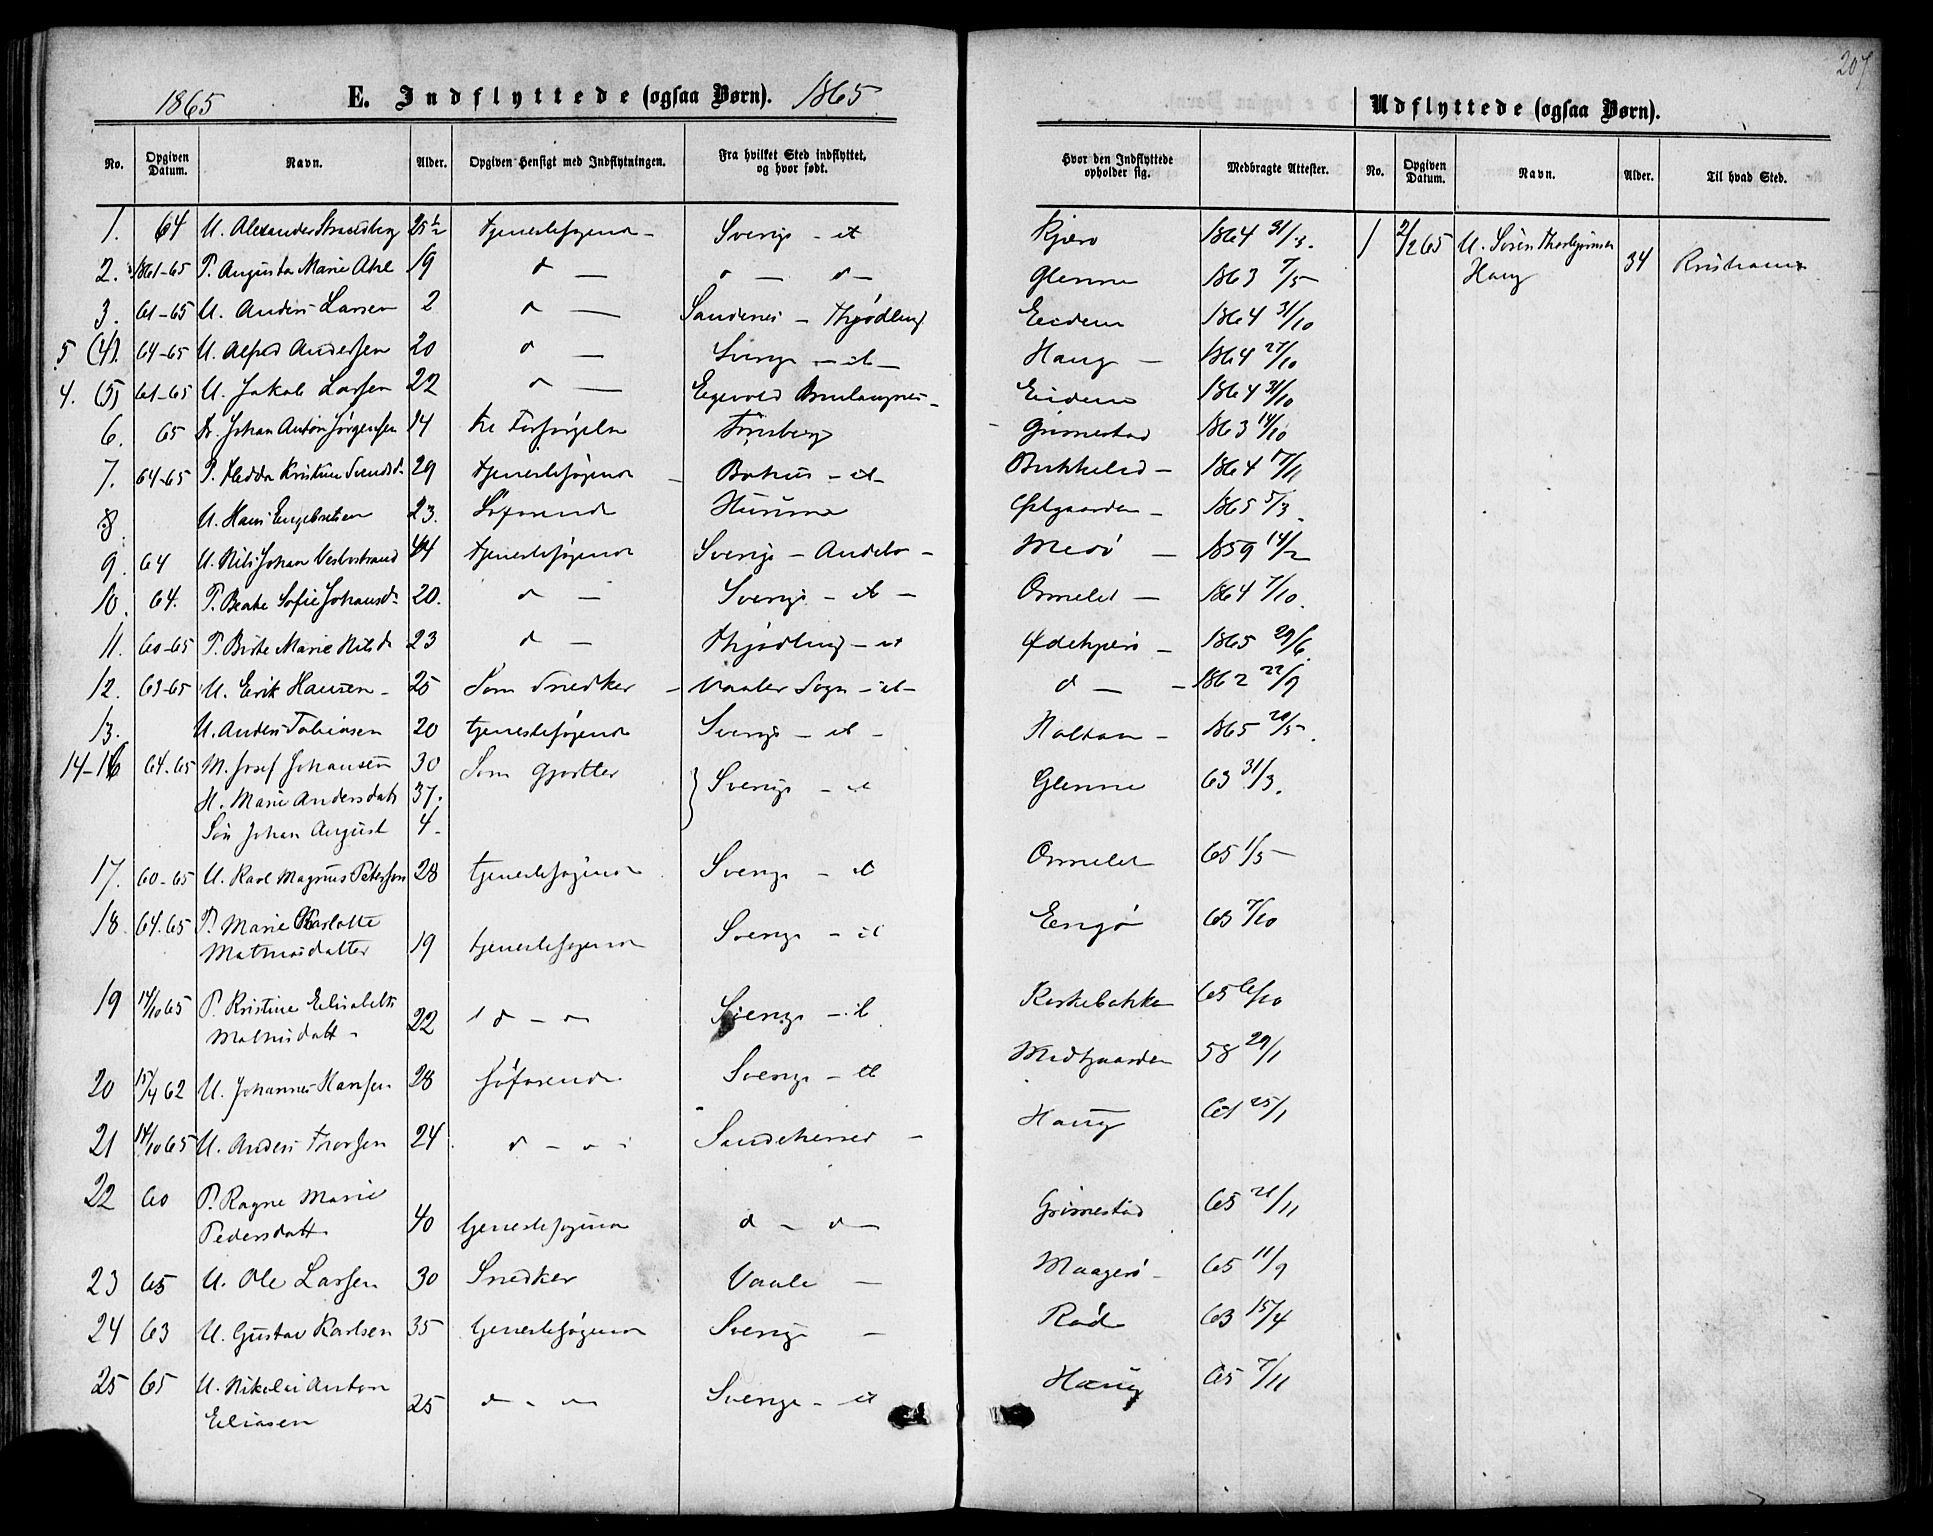 207
1865 E. Indflyttede (ogsaa Børn). 1865
Udflyttede (ogsaa Børn).
No. Opgiven Datum. Navn. Alder. Opgiven Hensigt med Indflytningen. Fra hvilket Sted indflyttet, og hvor født. Hvor den Indflyttede opholder sig. Medbragte Attester. No. Opgiven Datum. Navn. Alder. Til hvad Sted.
1. 64 U. Alexander Strandberg 25½ tjenestesøgende - Sverige - et Kjærø 1864 31/3. 1 2/2 65 U. Søren Thorbjørnsen Haug 34
2. 1861-65 P. Augusta Marie Ahl 19 d — d — d — Glenne 1863 7/5
3. 61-65 U. Anders Larsen 2 d — Sandenes - Thjødling Eidene 1864 31/10
5 (4). 64-65 U. Alfred Andersen 20 d — Sverige - et - Haug - 1864 27/10
4. (5) 61-65 U. Jakob Larsen 22 d — Eidene 1864 31/10
6. 65 Johan Anton Jørgensen 14 til Forsørgelse Tønsberg Grimestad 1863 14/10
7. 64-65 P. Hedda Kristine Svendsd. 29 tjenestesøgende - Bohus - et - Bukkelid - 1864 17/11
8. U. Hans Engebretsen 23. Søfarende Hurum Østgaarden - 1865 5/3
9. 64 U. Nils Johan Vesterstrand 44 tjenestesøgende Sverige - - Medø - 1859 14/2
10. 64. P. Beate Sofie Johansd. 20. d — Sverige - et - Ormelet - 1864 7/10.
11. 60-65 P. Birte Marie Nilsd. 23 d — Thjødling - et Ødekjære - 1865 29/6.
12. 63-65 U. Erik Hansen - 25 Som Snedker - Vaaler Sogn - et - d — - 1862 22/9
13. U. Anders Tobiasen 20 tjenestesøgende Sverige - et - Holtan - 1865 20/5.
14-16 64-65 M. Josef Johansen 30 Som Gjørtler } Sverige - et Glenne 63 31/3.
H. Marie Andersdatt. 37.
Søn Johan August 4.
17. 60-65 U. Karl Magnus Peterson 28 tjenestesøgende Sverige - et Ormelet 65 1/5
18. 64-65 P. Marie Charlotte Mathisdatter 19 tjenestesøgende Sverige - et Engø 63 7/10
19 14/10 65 P. Kristine Elisabeth Mathisdatt. 22 d - d Sverige - et Kirkebakken 65 6/10
20 15/4 62 U. Johannes Hansen 28 Søfarende Sverige - et Midtgaarden 58 29/1
21 14/10 65 U. Anders Thorsen 24 d - d Sandeherred - Haug 61 25/1
22 60 P. Ragne Marie Pedersdatt. 40 tjenestesøgende d - d Grimestad 65 21/11
23 65 U. Ole Larsen 30 Snedker Vaale - Maagerø - 65 11/9
24 63 U. Gustav Karlsen 35 tjenestesøgende Sverige - Rød 63 15/4
25 65 U. Nikolai Anton Eliasen 25 d - d Sverige - et Haug 65 7/11